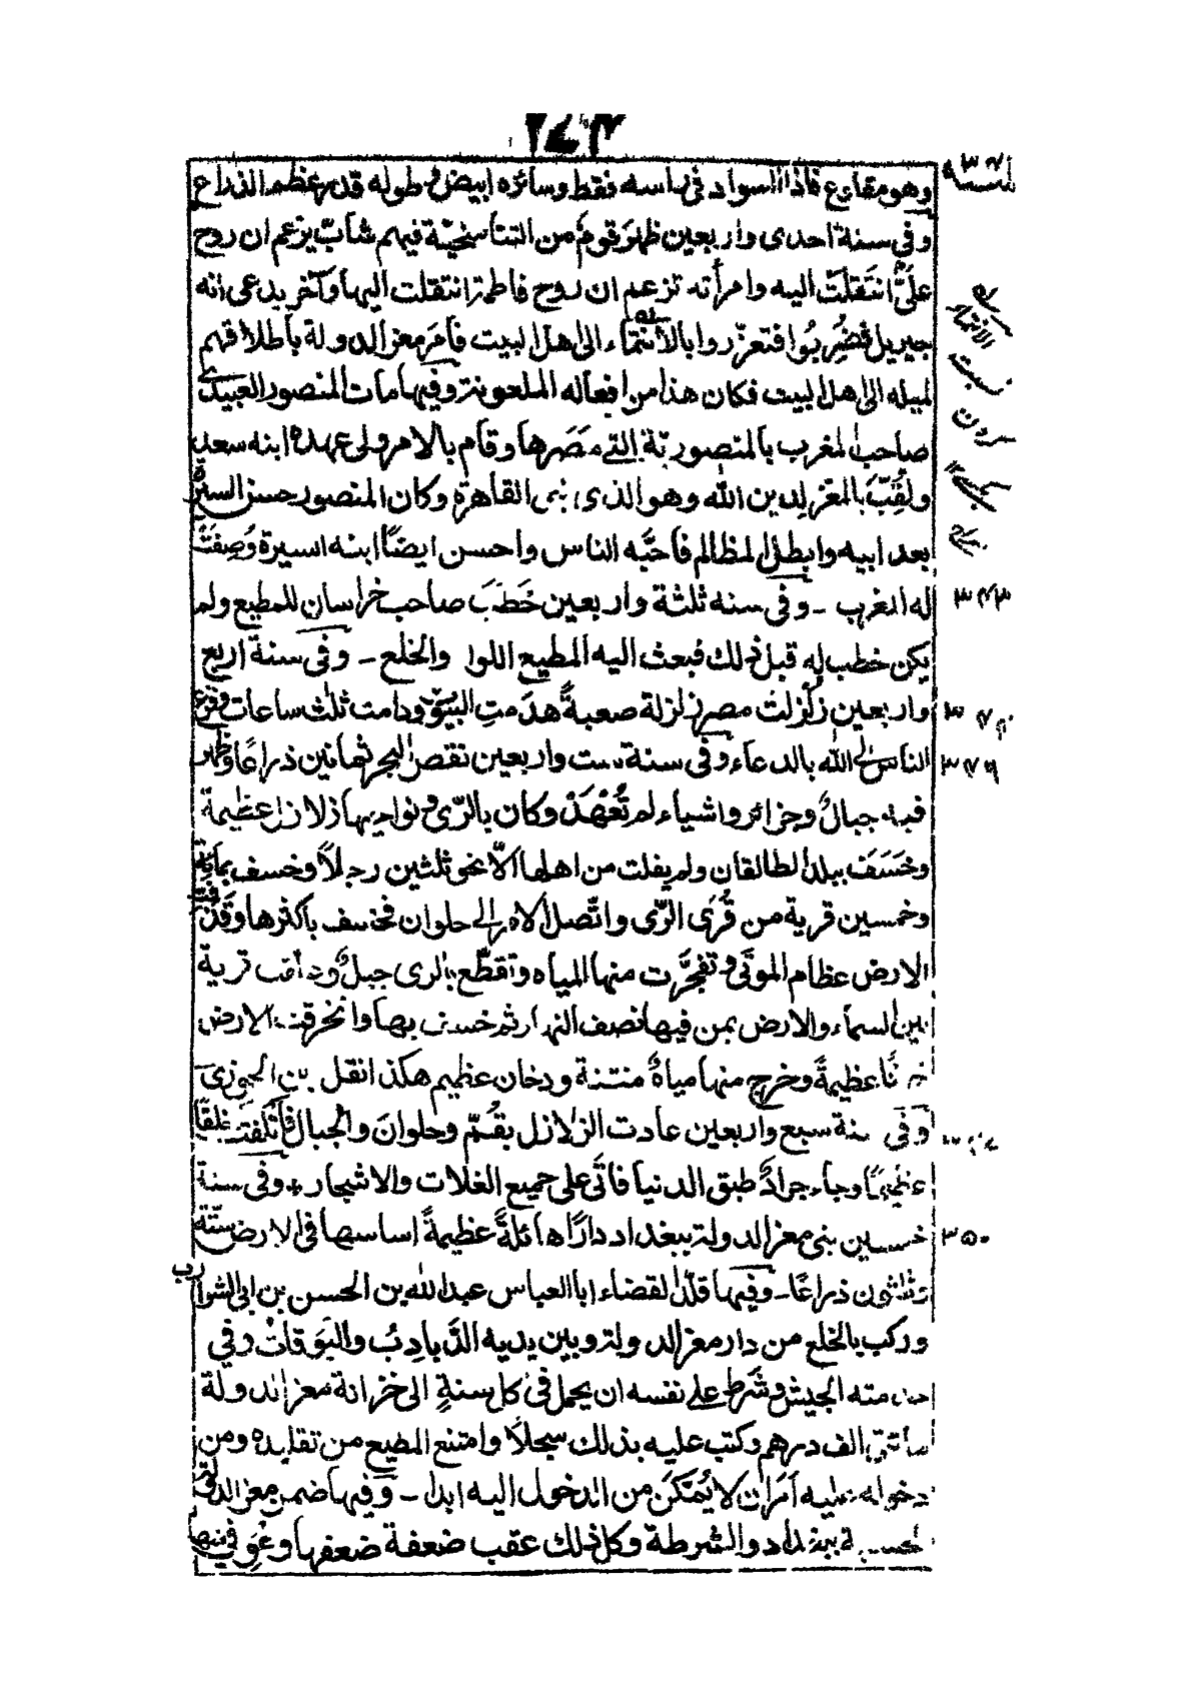 ٢٤٣
وهو مقلوع فاذا السواد فى راسه فقط وسائره ابيض و طوله قدر عظم الذراع
وفى سنة احدى واربعين ظهر قوم من التناسخيّة فيهم شابّ يزعم ان روح
علىّ انتقلت اليه وامرأته تزعم ان روح فاطمة انتقلت اليها وآخر يدعى انه
جبريل فضُرِبُوا فتعزّروا بالانتماء الى اهل البيت فأمر معز الدولة باطلاقهم
لميله الى اهل البيت فكان هذا من افعاله الملعونة وفيها مات المنصور العبيدى
صاحب المغرب بالمنصوريّة التى مصّرها وقام بالامر ولى عهده ابنه سعد
ولُقِّبَ بالمعز لدين الله وهو الذى بنى القاهرة وكان المنصور حسن السيرة
بعد ابيه وابطل المظالم فاحبّه الناس واحسن ايضاً ابنه السيرة وصفت
له المغرب ـ وفى سنه ثلثة واربعين خَطَبَ صاحب خراسان للمطيع ولم
يكن خطب له قبل ذلك فبعث اليه المطيع اللوا والخلع ـ وفى سنة اربع
واربعين زُلْزِلت مصر زلزلة صعبةً هدمتِ البيوت ودامت ثلث ساعات وفزع
الناس الى الله بالدعاء وفى سنة ست واربعين نقص البحر ثمانين ذراعًا وظهر
فيه جبالٌ وجزائر واشياء لم تُعْهَدْ وكان بالرّى ونواحيها زلازل عظيمة
وخَسَفَ ببلد الطالقان ولم يفلت من اهلها الّا نحو ثلثين رجلًا وخسف بمائة
وخمسين قرية من قُرَى الرّى واتّصل الامر الى حلوان فخسف باكثرها وقذفت
الارض عظام الموتى وتفجّرت منها المياه وتقطّع بالرى جبلٌ وعلقت قرية
بين السماء والارض بمن فيها نصف النهار ثم خسف بها وانخرقت الارض
خرقًا عظيمةً وخرج منها مياهٌ منتنة ودخان عظيم هكذا نقل بن الجوزى
وفى سنة سبع واربعين عادت الزلازل بقُمّ وحلوانَ والجبال فأتلفت خلقًا
عظيمًا وجاء جرادٌ طبق الدنيا فأتى على جميع الغلات والاشجار + وفى سنة
خمسين بنى معز الدولة ببغداد دارًا هائلةً عظيمةً اساسها فى الارض ستّة
وثلثون ذراعًا ـ وفيها قلّد القضاء ابا العباس عبد الله بن الحسن بن ابى الشوارب
وركب بالخلع من دار معز الدولة وبين يديه الدّبادِبُ والبُوقاتُ وفى
خدمته الجيش وشَرط على نفسه ان يحمل فى كل سنةٍ الى خزانة معز الدولة
مأتى الف درهم وكتب عليه بذلك سجلًا وامتنع المطيع من تقليده ومن
دخوله عليه وأمر ان لا يُمَكَّنَ من الدخول اليه ابدا ـ وفيها ضمن معز الدولة
الحسبة ببغداد والشرطة وكل ذلك عقب ضعفة ضعفها وعُوفى منها
٣٤١
الانتماء
نسبت
كردن
٣٤٣
٣٤٤
٣٤٦
٣٥٠